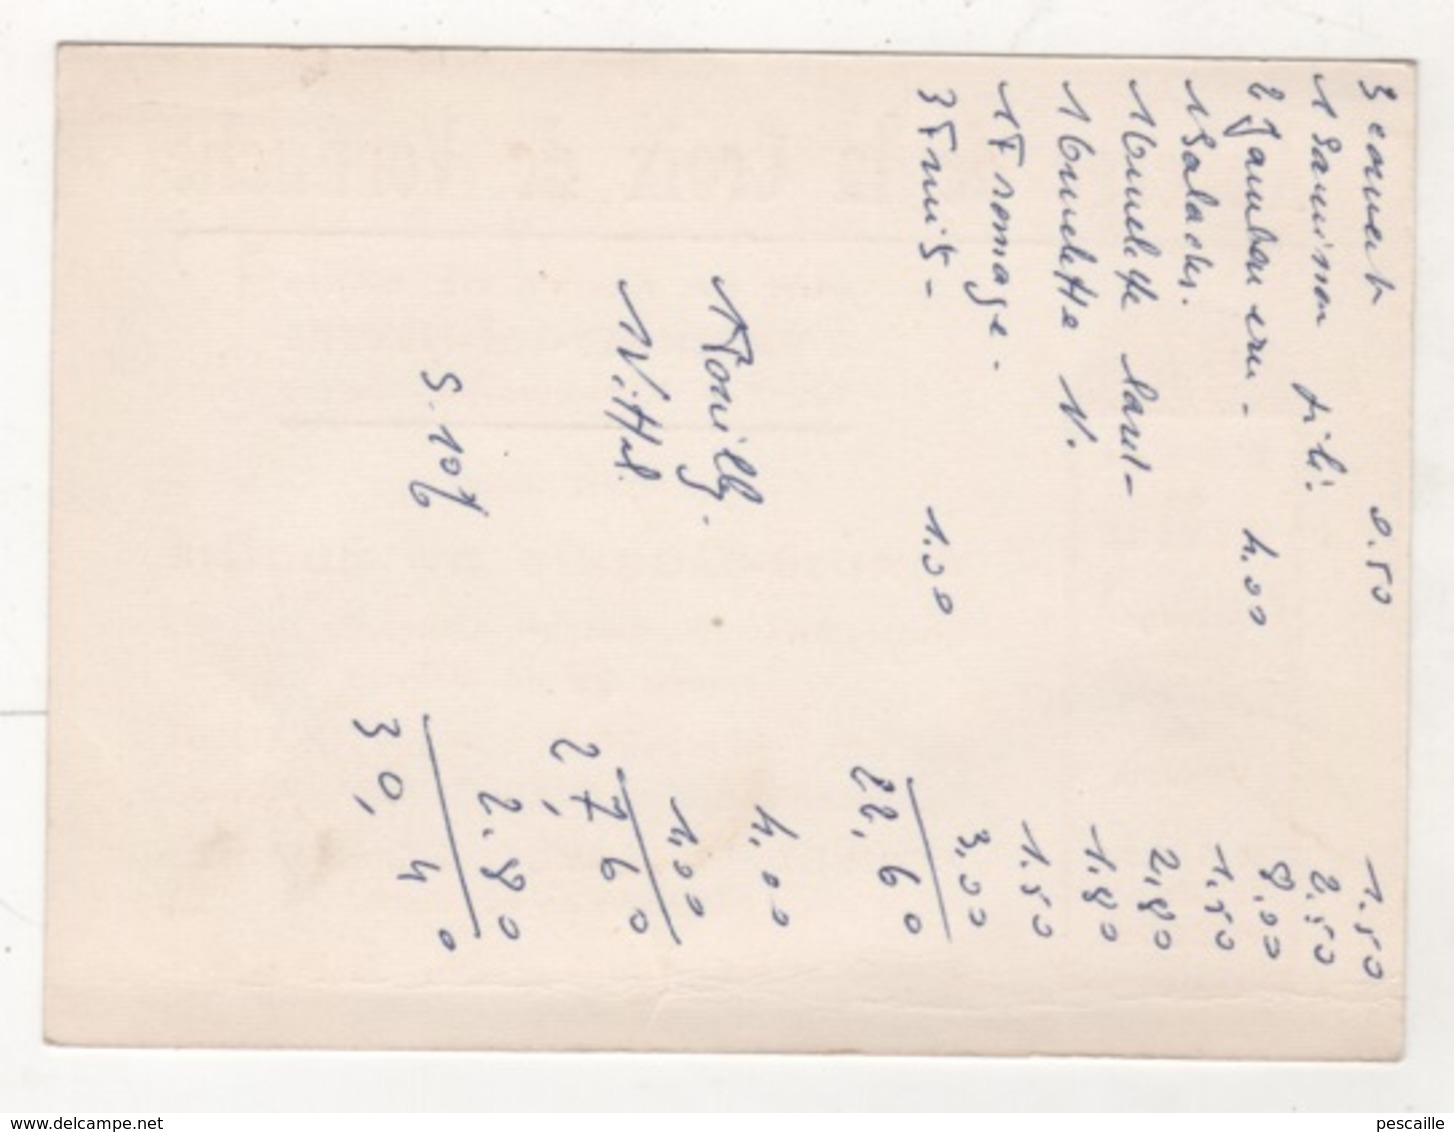 3 couvert 0.50 1.50
1 Saucisson 2.50
2 Jambon cru - 4.00 8.00
1 Salades. 1.50
1 Omelette 2.80
1 Omelette N. 1.80
1 Fromage. 1.50
3 Fruits - 1.00 3,00
22,60
1 Pouilly. 4.00
1 Vittel. 1,00
27,60
S. 10% 2.80
30,40
www.delcampe.net
pescaille